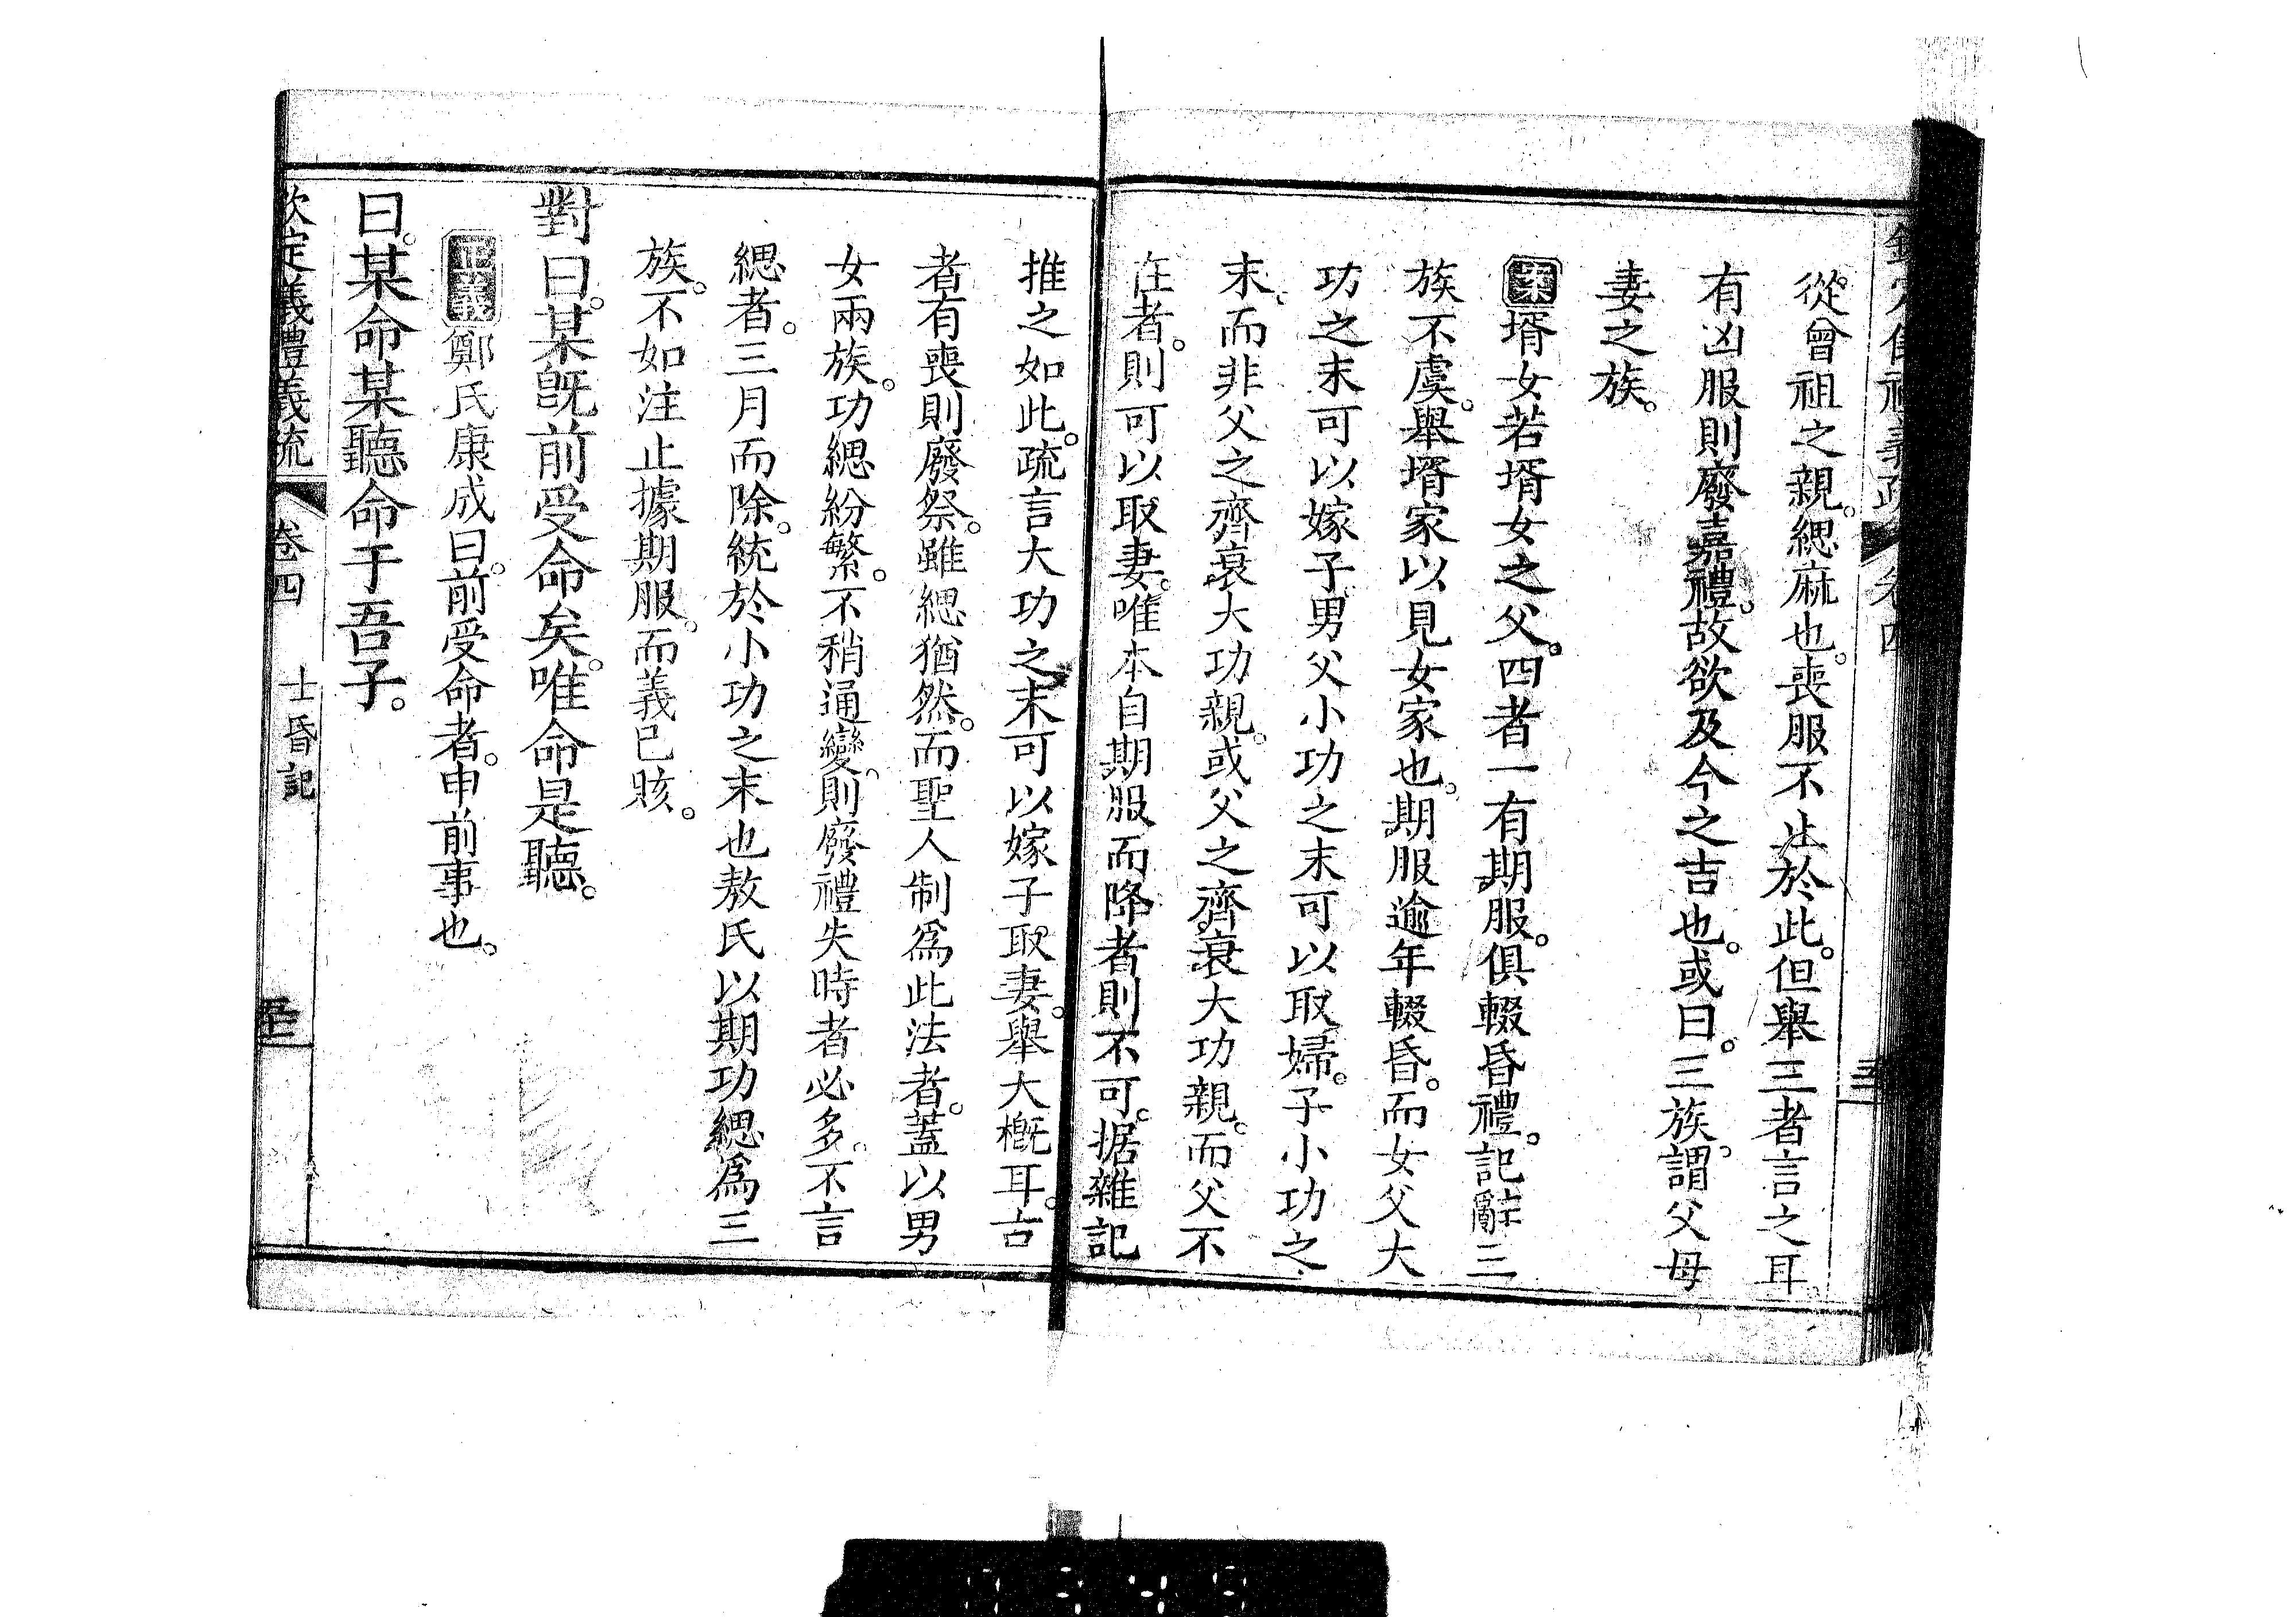 從曾祖之親。緦麻也。喪服不止於此。但舉三者言之耳
有凶服則廢嘉禮。故欲及今之吉也。或曰。三族。謂父母
妻之族。
案壻女若壻女之父。四者一有期服。俱輟昏禮。記辭三
族不虞。舉壻家以見女家也。期服逾年輟昏。而女父大
功之末可以嫁子。男父小功之末可以取婦。子小功之
末。而非父之齊衰大功親。或父之齊衰大功親。而父不
在者。則可以取妻。唯本自期服而降者則不可。据雜記
推之如此。疏言大功之末可以嫁子取妻。舉大槪耳。古
者有喪則廢祭。雖緦猶然。而聖人制爲此法者。蓋以男
女兩族。功緦紛繁。不稍通變。則廢禮失時者必多。不言
緦者。三月而除。統於小功之末也敖氏以期功緦爲三
族。不如注止據期服。而義已賅。
對曰。某旣前受命矣。唯命是聽。
正義鄭氏康成曰。前受命者。申前事也。
曰。某命某聽命于吾子。
欽定義禮義疏 卷四 士昏記